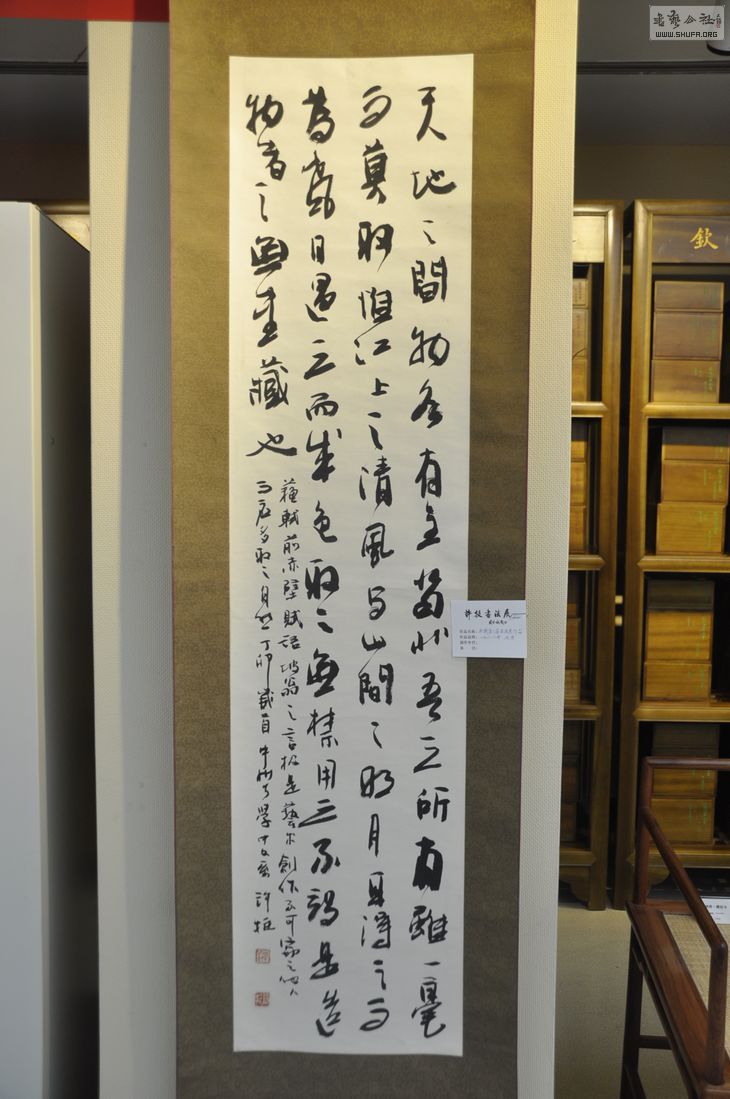 書藝公社
WWW.SHUFA.ORG
欽
天地之間物各有主苟非吾之所有雖一毫
而莫取惟江上之清風與山間之明月耳得之而
為聲目遇之而成色取之無禁用之不竭是造
物者之無盡藏也
蘇軾前赤壁賦語坡翁之言極是藝術創作不可寄之他人
而應多取之自然丁卯歲首
書法展